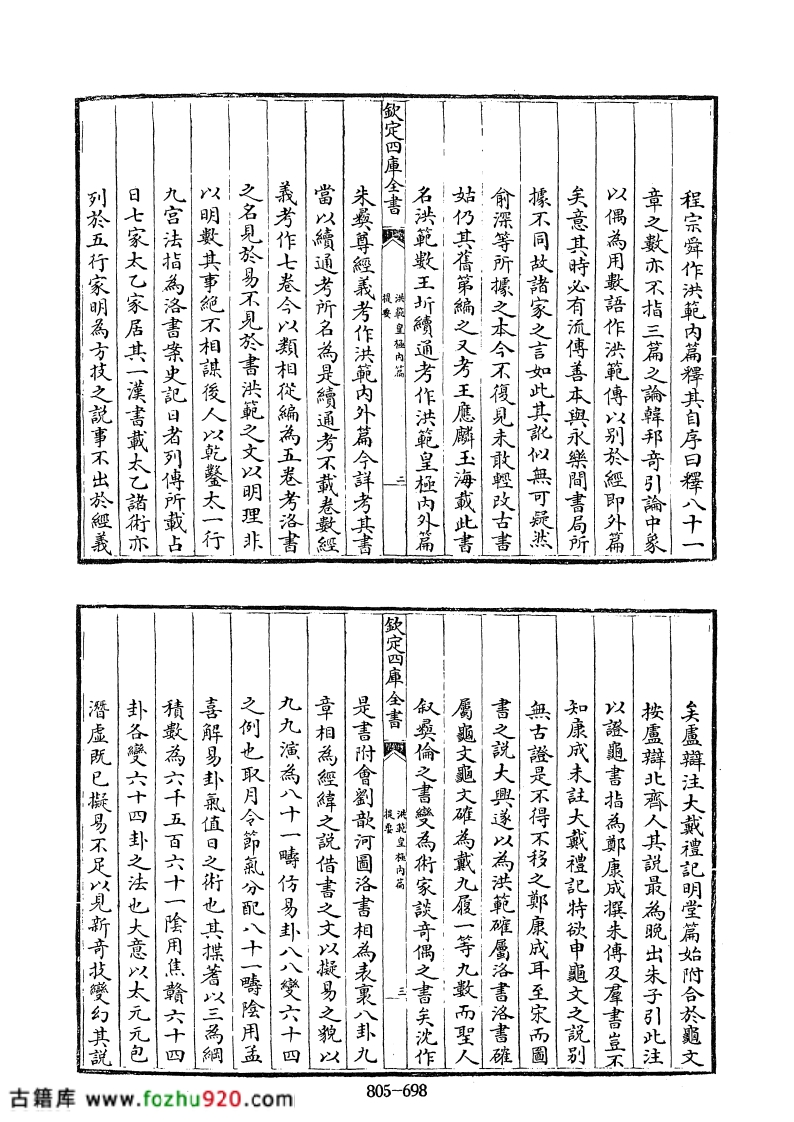 程宗舜作洪範內篇釋其自序曰釋八十一
章之數亦不指三篇之論韓邦奇引論中象
以偶為用數語作洪範傳以别於經即外篇
矣意其時必有流傳善本與永樂間書局所
據不同故諸家之言如此其訛似無可疑然
俞深等所據之本今不復見未敢輕改古書
姑仍其舊第編之又考王應麟玉海載此書
名洪範數王圻續通考作洪範皇極内外篇
欽定四庫全書
洪範皇極内篇
提要
二
朱彝尊經義考作洪範内外篇今詳考其書
當以續通考所名為是續通考不載卷數經
義考作七卷今以類相從編為五卷考洛書
之名見於易不見於書洪範之文以明理非
以明數其事絕不相謀後人以乾鑿太一行
九宮法指為洛書案史記日者列傳所載占
日七家太乙家居其一漢書載太乙諸術亦
列於五行家明為方技之説事不出於經義
矣盧辯注大戴禮記明堂篇始附合於龜文
按盧辯北齊人其說最為晚出朱子引此注
以證龜書指為鄭康成撰朱傳及羣書豈不
知康成未註大戴禮記特欲申龜文之說别
無古證是不得不移之鄭康成耳至宋而圖
書之說大興遂以為洪範確屬洛書洛書確
屬龜文龜文確為戴九履一等九數而聖人
叙彝倫之書變為術家談奇偶之書矣沈作
欽定四庫全書
洪範皇極内篇
提要
三
是書附會劉歆河圖洛書相為表裏八卦九
章相為經緯之說借書之文以擬易之貌以
九九演為八十一疇仿易卦八八變六十四
之例也取月令節氣分配八十一疇陰用孟
喜解易卦氣值日之術也其揲蓍以三為綱
積數為六千五百六十一陰用焦贛六十四
卦各變六十四卦之法也大意以太元元包
潛虛既已擬易不足以見新奇技變幻其說
805-698
古籍库 www.fozhu920.com